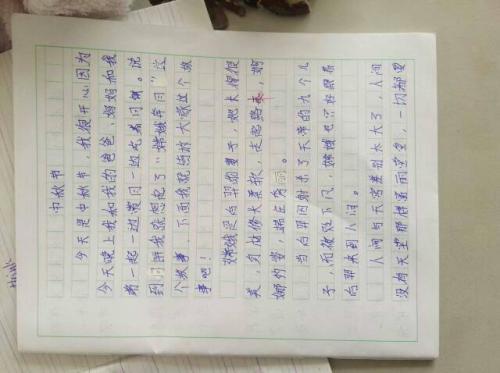 中秋节
今天是中秋节，我很开心因为
今天晚上我和我的爸爸、妈妈和我
一起一边赏月一边吃着月饼。说
到月饼我就想起了“嫦娥奔月”这
个故事，下面我就给大家这个故
事吧！
嫦娥是后羿的妻子，她长得很
美，身材修长柔软，走起路来，婀
娜的姿，端庄秀丽。
当后羿因射杀了天帝的九个儿
子，而被贬下凡，嫦娥也只好跟着
后羿来到人间。
人间与天宫差别太大了，人间
没有天堂那样，一切都要